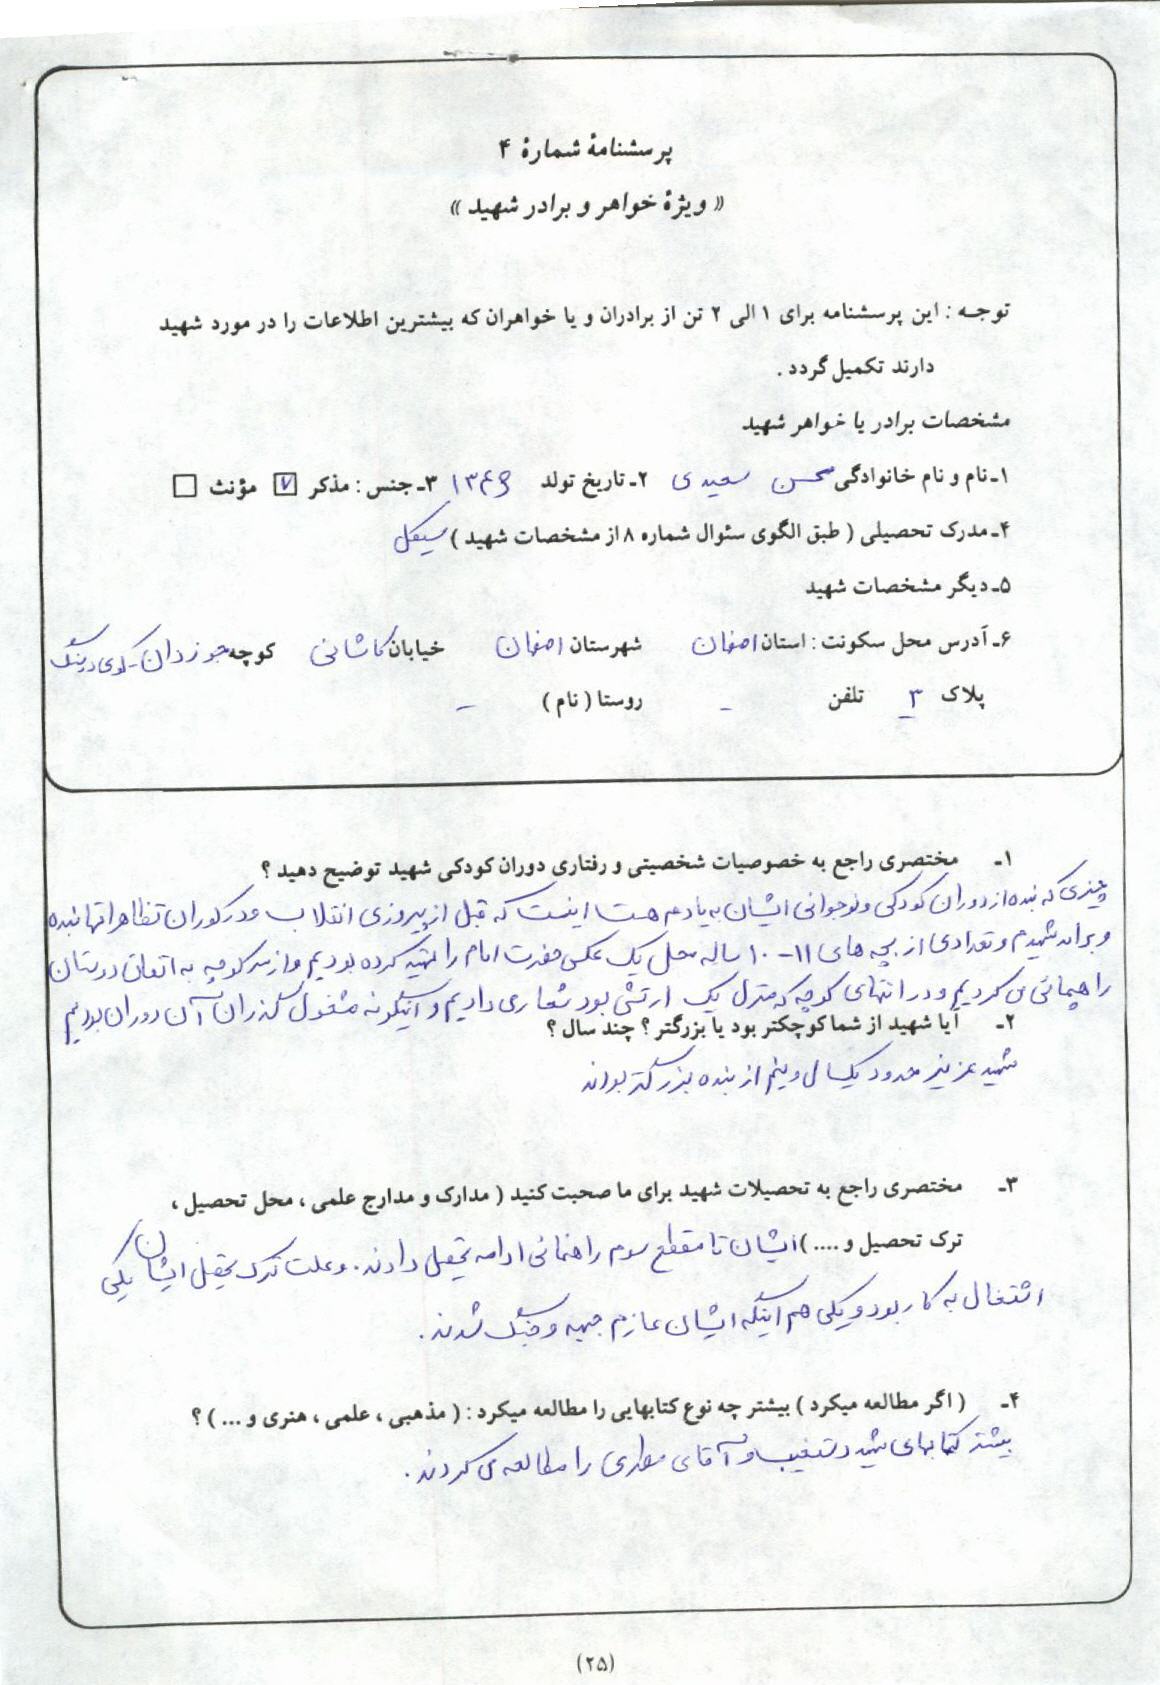 پرسشنامهٔ شمارهٔ ۴
« ویژهٔ خواهر و برادر شهید »
توجـه : این پرسشنامه برای ۱ الی ۲ تن از برادران و یا خواهران که بیشترین اطلاعات را در مورد شهید
دارند تکمیل گردد .
مشخصات برادر یا خواهر شهید
۱ـ نام و نام خانوادگی محسن سعیدی ۲ـ تاریخ تولد ۱۳۴۶ ۳ـ جنس : مذکر ☑ مؤنث ☐
۴ـ مدرک تحصیلی ( طبق الگوی سئوال شماره ۸ از مشخصات شهید ) سیکل
۵ـ دیگر مشخصات شهید
۶ـ آدرس محل سکونت : استان اصفهان شهرستان اصفهان خیابان کاشانی کوچه جوزدان - کوی
پلاک ۳ تلفن - روستا ( نام ) -
۱ـ مختصری راجع به خصوصیات شخصیتی و رفتاری دوران کودکی شهید توضیح دهید ؟
چیزی که بنده از دوران کودکی و نوجوانی ایشان به یادم هست اینست که قبل از پیروزی انقلاب و در کوران تظاهراتها بنده
و برادر شهیدم و تعدادی از بچه های ۱۱-۱۰ ساله محل یک عکس حضرت امام را تهیه کرده بودیم و از سر کوچه به اتفاق دوستان
راهپیمائی می کردیم و در انتهای کوچه که منزل یک ارتشی بود شعار می دادیم و اینگونه مشغول گذران آن دوران بودیم
۲ـ آیا شهید از شما کوچکتر بود یا بزرگتر ؟ چند سال ؟
شهید عزیز حدود یکسال و نیم از بنده بزرگتر بودند
۳ـ مختصری راجع به تحصیلات شهید برای ما صحبت کنید ( مدارک و مدارج علمی ، محل تحصیل ،
ترک تحصیل و .... ) ایشان تا مقطع سوم راهنمائی ادامه تحصیل دادند. و علت ترک تحصیل ایشان یکی
اشتغال به کار بود و یکی هم اینکه ایشان عازم جبهه و جنگ شدند.
۴ـ ( اگر مطالعه میکرد ) بیشتر چه نوع کتابهایی را مطالعه میکرد : ( مذهبی ، علمی ، هنری و ... ) ؟
بیشتر کتابهای شهید دستغیب و آقای را مطالعه می کردند.
(۲۵)